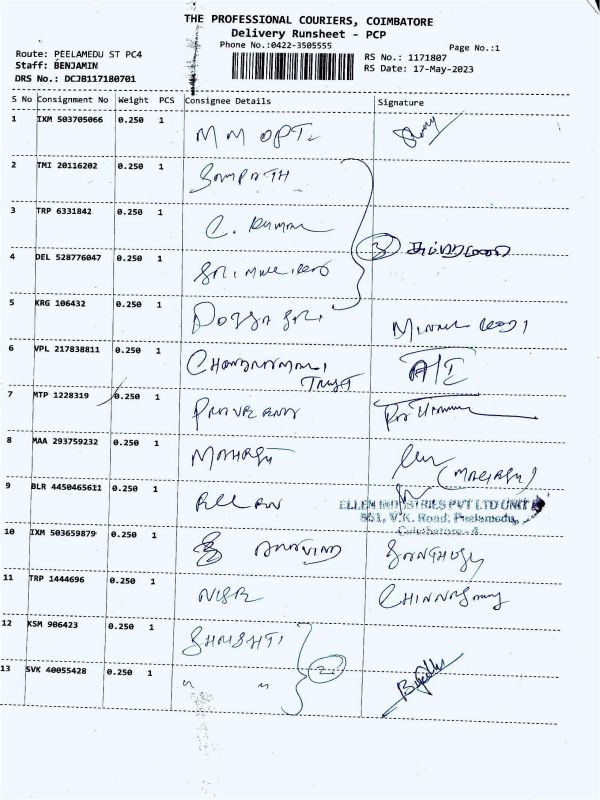 THE PROFESSIONAL COURIERS, COIMBATORE
Delivery Runsheet - PCP
Phone No.:0422-3505555
Page No.:1
Route: PEELAMEDU ST PC4
Staff: BENJAMIN
DRS No.: DCJB117180701
RS No.: 1171807
RS Date: 17-May-2023
S No Consignment No Weight PCS Consignee Details Signature
1 IXM 503705066 0.250 1 MM OPT.
2 TMI 20116202 0.250 1 SAMPATH
3 TRP 6331842 0.250 1 C. KUMAR
4 DEL 528776047 0.250 1
5 KRG 106432 0.250 1
6 VPL 217838811 0.250 1 TRUST
7 MTP 1228319 0.250 1
8 MAA 293759232 0.250 1
9 BLR 4450465611 0.250 1
ELLEN INDUSTRIES PVT LTD UNIT
551, V.K. Road, Peelamedu,
Coimbatore-4.
10 IXM 503659879 0.250 1 ARAVIND
11 TRP 1444696 0.250 1
12 KSM 906423 0.250 1 SHRISHTI
13 SVK 40055428 0.250 1 " "